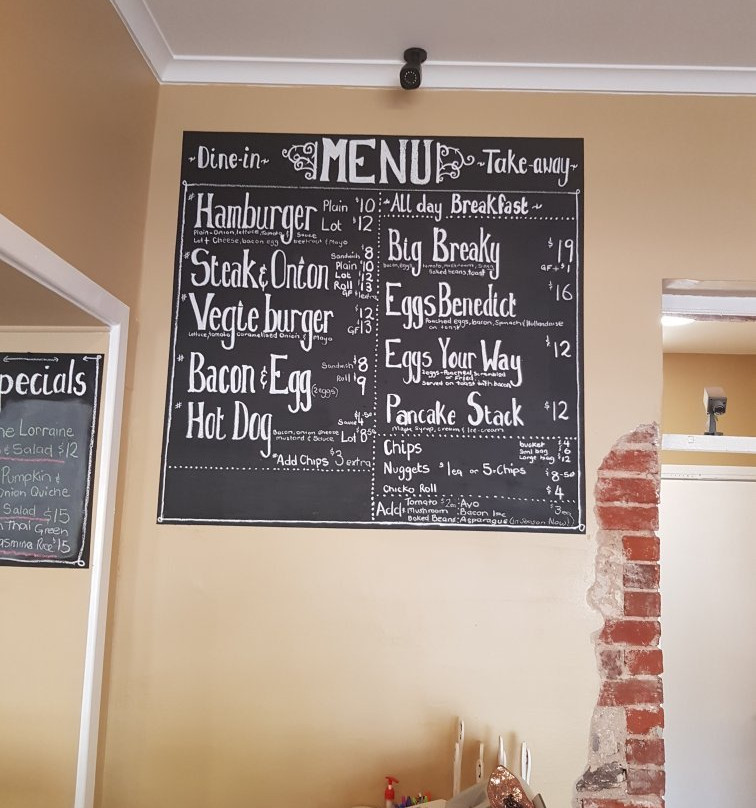 ~Dine-in~ MENU ~Take-away~
*Hamburger Plain $10
Lot $12
Plain-Onion, lettuce, tomato, Sauce
Lot + Cheese, bacon egg beetroot & Mayo
*Steak & Onion Sandwich $8
Plain $10
Lot $12
Roll $13
GF $1 extra
*Vegie burger $12
GF 13
Lettuce, tomato, Caramelised Onion & Mayo
*Bacon & Egg (2 eggs) Sandwish $8
Roll $9
*Hot Dog Sauce 4
Bacon, onion cheese
mustard & Sauce Lot $8.50
*Add Chips $3 extra
~All day Breakfast~
Big Breaky $19
GF + $1
baked beans, toast
Eggs Benedict $16
Poached Eggs, bacon, Spinach & Hollandaise
on toast
Eggs Your Way $12
2eggs-Poached, Scrambled
or Fried
Served on toast with bacon
Pancake Stack $12
Maple Syrup, cream & Ice-cream
Chips bucket $4
Sml bag $6
Large bag $12
Nuggets $1ea or 5+Chips $8.50
Chicko Roll $4
Add: Tomato $2ea :Avo $3ea
Mushroom :Bacon
Baked Beans :Asparagus (in Season Now)
pecials
Lorraine
& Salad $12
Pumpkin &
Onion Quiche
Salad $15
Thai Green
Rice $15